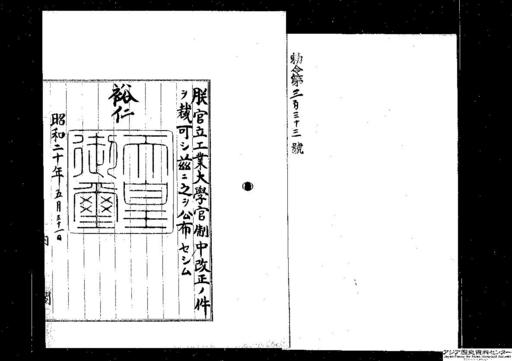 勅令第三百三十三號
朕官立工業大學官制中改正ノ件
ヲ裁可シ茲ニ之ヲ公布セシム
裕仁
天皇
御璽
昭和二十年五月三十一日
内閣
アジア歴史資料センター